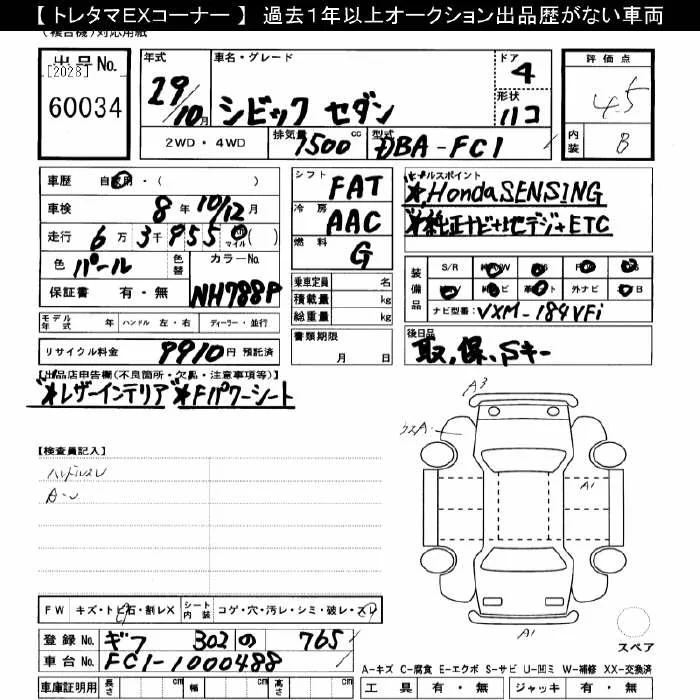 【トレタマEXコーナー】 過去1年以上オークション出品歴がない車両
(複合機)対応用紙
出品No.
[2028]
60034
年式
29/10月
車名・グレード
シビック セダン
ドア
4
形状
ハコ
評価点
4.5
内装
B
2WD・4WD
排気量
1500cc
型式
DBA-FC1
車歴 自家用・( )
車検 8年10/12月
走行 6万3千955 マイル ( )
色 パール
色替
カラーNo.
NH788P
保証書 有・無
モデル年式 年
ハンドル 左・右
ディーラー・並行
リサイクル料金 9910円 預託済
シフト FAT
冷房 AAC
燃料 G
乗車定員 名
積載量 kg
総重量 kg
書類期限
月 日
セールスポイント
*HondaSENSING
*純正ナビ+地デジ+ETC
装備品
S/R
外ナビ
ナビ型番: VXM-184VFi
後日品
取、保、Sキー
【出品店申告欄(不良箇所・欠品・注意事項等)】
*レザーインテリア *Fパワーシート
【検査員記入】
ハンドルスレ
FW
キズ・トビ石・割レX
シート内装
コゲ・穴・汚レ・シミ・破レ・スレ
登録No. ギフ 302 の 765
車台No. FC1-1000488
車庫証明用
長さ cm
幅 cm
高さ cm
A3
A1
A1
スペア
A-キズ C-腐食 E-エクボ S-サビ U-凹ミ W-補修 XX-交換済
工具 有・無
ジャッキ 有・無